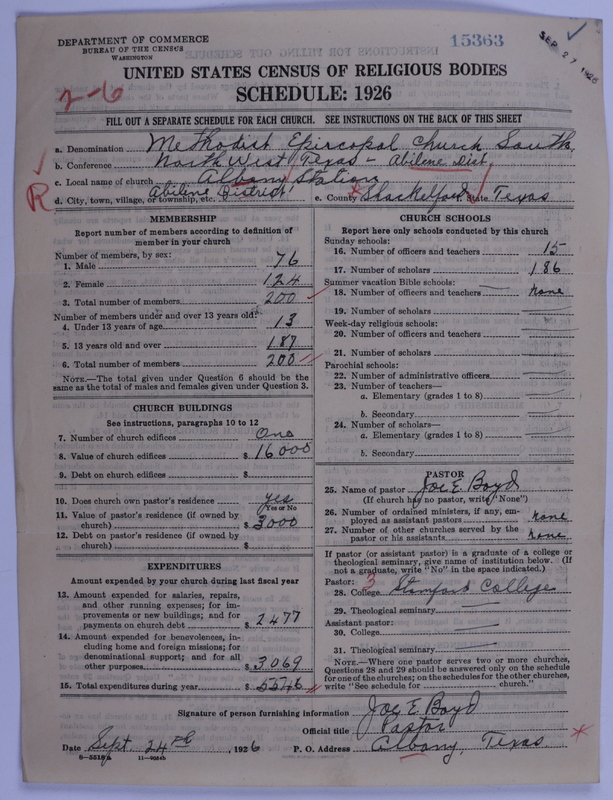 DEPARTMENT OF COMMERCE
BUREAU OF THE CENSUS
WASHINGTON
15363
SEP 27 1926
UNITED STATES CENSUS OF RELIGIOUS BODIES
SCHEDULE: 1926
2-6
FILL OUT A SEPARATE SCHEDULE FOR EACH CHURCH. SEE INSTRUCTIONS ON THE BACK OF THIS SHEET
a. Denomination Methodist Episcopal Church South
b. Conference North West Texas - Abilene Dist.
c. Local name of church Albany Station
R
d. City, town, village, or township, etc. Abilene District e. County Shackelford State Texas
MEMBERSHIP
Report number of members according to definition of
member in your church
Number of members, by sex:
1. Male 76
2. Female 124
3. Total number of members 200
Number of members under and over 13 years old:
4. Under 13 years of age 13
5. 13 years old and over 187
6. Total number of members 200
NOTE.—The total given under Question 6 should be
same as the total of males and females given under Question 3.
CHURCH BUILDINGS
See instructions, paragraphs 10 to 12
7. Number of church edifices One
8. Value of church edifices $ 16000
9. Debt on church edifices $
10. Does church own pastor's residence yes
Yes or No
11. Value of pastor's residence (if owned by
church) $ 3000
12. Debt on pastor's residence (if owned by
church) $
EXPENDITURES
Amount expended by your church during last fiscal year
13. Amount expended for salaries, repairs,
and other running expenses; for im-
provements or new buildings; and for
payments on church debt $ 2477
14. Amount expended for benevolences, in-
cluding home and foreign missions; for
denominational support; and for all
other purposes $ 3069
15. Total expenditures during year $ 5546
CHURCH SCHOOLS
Report here only schools conducted by this church
Sunday schools:
16. Number of officers and teachers 15
17. Number of scholars 186
Summer vacation Bible schools:
18. Number of officers and teachers None
19. Number of scholars
Week-day religious schools:
20. Number of officers and teachers
21. Number of scholars
Parochial schools:
22. Number of administrative officers
23. Number of teachers—
a. Elementary (grades 1 to 8)
b. Secondary
24. Number of scholars—
a. Elementary (grades 1 to 8)
b. Secondary
PASTOR
25. Name of pastor Joe E. Boyd
(If church has no pastor, write "None")
26. Number of ordained ministers, if any, em-
ployed as assistant pastors None
27. Number of other churches served by the
pastor or his assistants None
If pastor (or assistant pastor) is a graduate of a college or
theological seminary, give name of institution below. (If
not a graduate, write "No" in the space indicated.)
Pastor: 3
28. College Stamford College
29. Theological seminary
Assistant pastor:
30. College
31. Theological seminary
NOTE.—Where one pastor serves two or more churches,
Questions 28 and 29 should be answered only on the schedule
for one of the churches; on the schedules for the other churches,
write "See schedule for church."
Signature of person furnishing information Joe E. Boyd
Official title Pastor
Date Sept. 24th, 1926 P. O. Address Albany, Texas
11—9054b